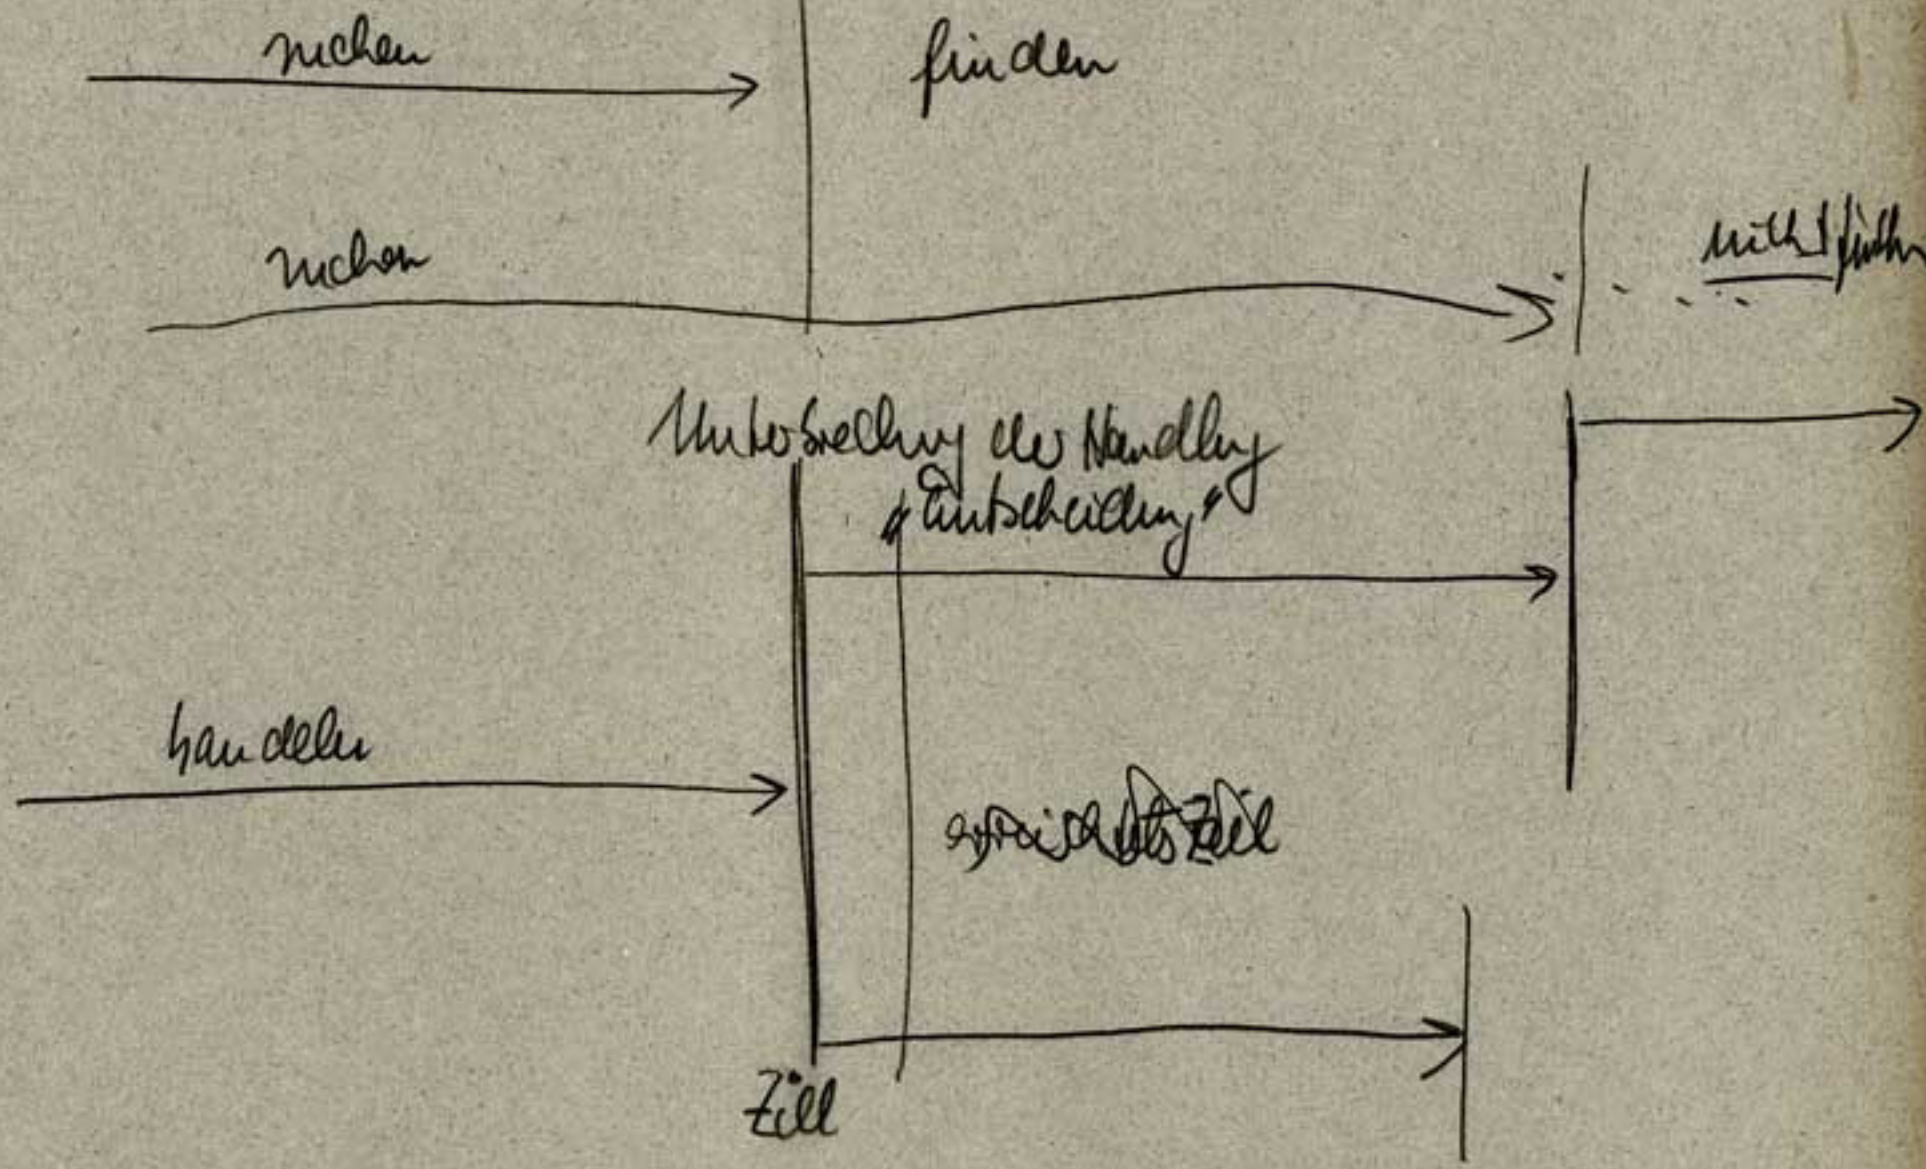 suchen
finden
suchen
nicht finden
Unterbrechung der Handlung
„Entscheidung"
handeln
Ziel